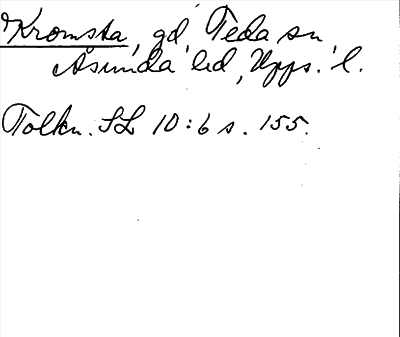 Kromsta, gd, Teda sn
Åsunda hd, Upps. l.
Tolkn. SL 10:6 s. 155.